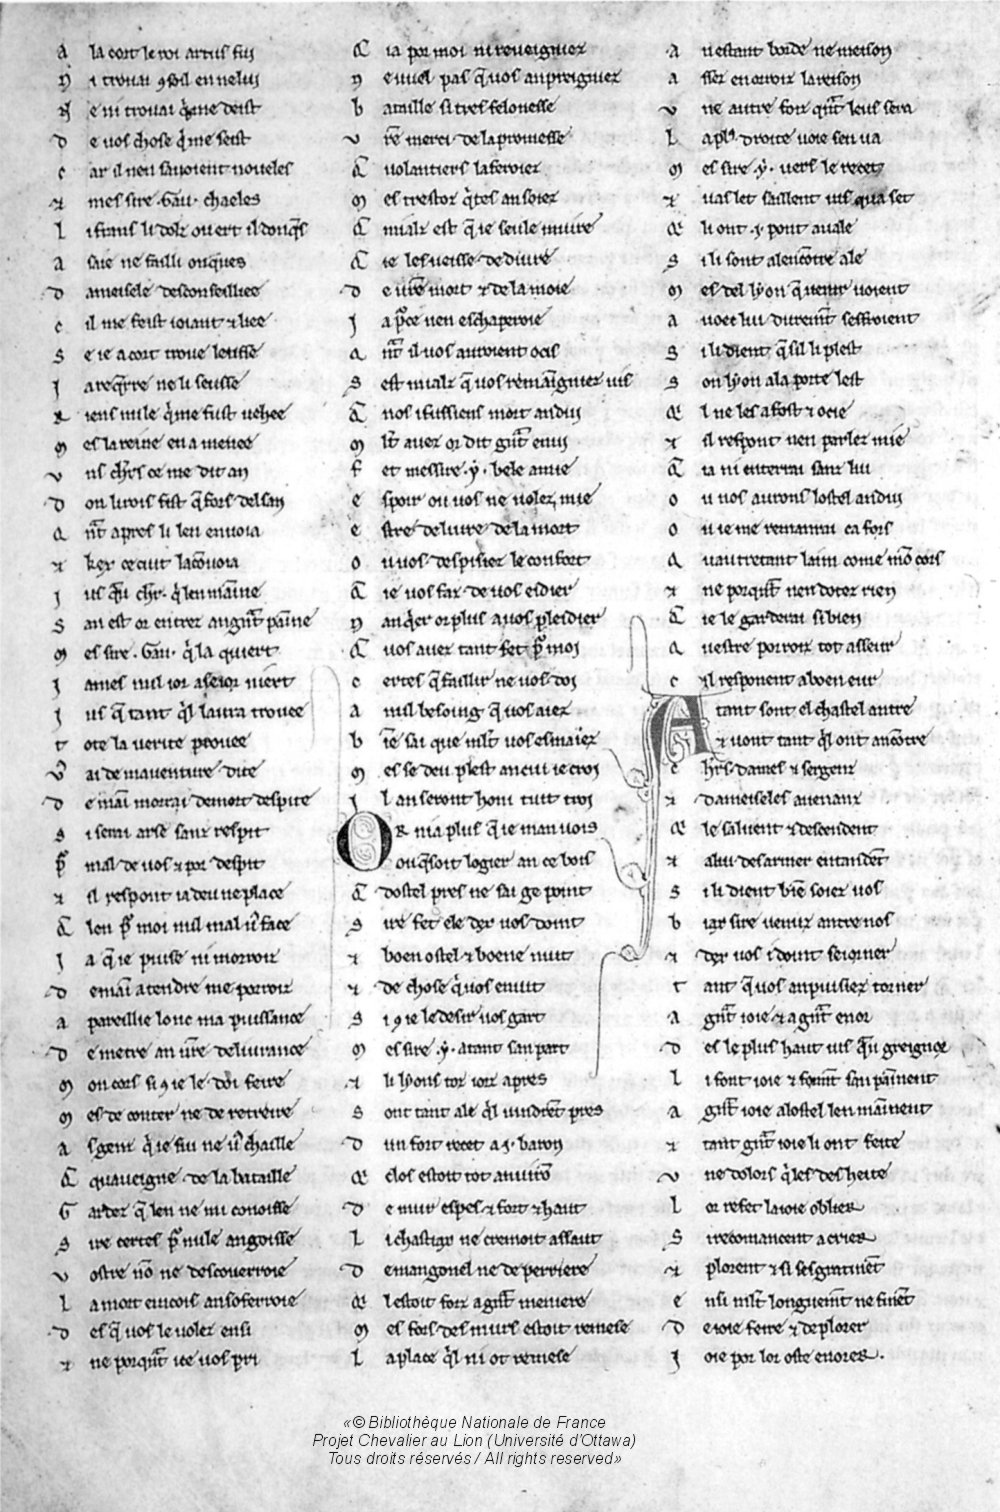 A la cort le roi artus fui
N i trovai ꝯsoil en nelui
N e ni trovai q̇ me deist
D e vos chose q̇ me seist
C ar il nen savoient noveles
⁊ mes sire .Gau. chaeles
L i frans li dolz ou ert il donq̄s
A s aie ne failli onques
D ameisele desconseilliee
C il me feist joiant ⁊ liee
S e je a cort trove leusse
J a req̄rre ne li seusse
R iens nule q̇ me fust vehee
M es la reine en a menee
U ns ch'rs ce me dit an
D on li rois fist q̄ fors del san
Q n̄t apres li len envoia
⁊ kex ce cuit la cōvoia
J us q̄u ch'r. q̇ len mainne
S an est or entrez an gn̄t painne
M es sire .Gau. q̇ la quiert
J ames nul jor a sejor niert
J us q̄ tant q̇l laura trovee
T ote la verite provee
V̓ ai de maventure dite
D emain morrai de mort despite
S i serai arse sanz respit
P̄ mal de vos ⁊ por despit
⁊ il respont ja deu ne place
Q̄ len p̄ moi nul mal v̓ face
J a q̄ je puise ni morroiz
D emain atendre me porroiz
A pareillie lonc ma puissance
D e metre an vr̄e delivrance
M on cors si ꝯ je le doi feire
M es de conter ne de retreire
A s genz q̇ je sui ne v̓ chaille
Q̄ quaveigne de la bataille
G ardez q̄ len ne mi conoisse
S ire certes p̄ nule angoisse
V ostre nō ne descoverroie
L a mort eincois an soferroie
D es q̄ vos le volez ensi
⁊ ne porqn̄t ice vos pri
Q̄ ja por moi ni reveigniez
N e vuel pas q̄ vos anpreigniez
B ataille si tres felonesse
V r̄e merci de la promesse
Q̄ volantiers la feroiez
M es trestoz q̇tes an soiez
Q̄ mialz est q̄ je seule muire
Q̄ je les veisse deduire
D e vr̄e mort ⁊ de la moie
J a p̄ ce nen eschaperoie
Q n̄t il vos avroient ocis
S est mialz q̄ vos remaigniez vis
Q̄ nos i fussiens mort andui
M lt̄ avez or dit gn̄t enui
F et messire .y. bele amie
E spoir ou vos ne volez mie
E stre delivre de la mort
O u vos despisiez le confort
Q̄ je vos faz de vos eidier
N an q̇er or plus a vos pleidier
Q̄ vos avez tant fet p̄ moi
C ertes q̄ faillir ne vos doi
A nul besoing q̄ vos aiez
B iē sai que mlt̄ vos esmaiez
M es se deu plest an cui je croi
I l an seront honi tuit troi
OR nia plus q̄ je man vois
Ou q̄ soit logier an ce bois
Q̄ dostel pres ne sai ge point
S ire fet ele dex vos doint
⁊ boen ostel ⁊ boene nuit
⁊ de chose q̇ vos enuit
S i ꝯ je le desir vos gart
M es sire .y. atant san part
⁊ li lyons toz jorz apres
S ont tant ale q̇l vindrent pres
D un fort recet a .j. baron
Q̄ clos estoit tot anvirō
D e mur espes ⁊ fort ⁊ haut
L i chastiax ne cremoit assaut
D e mangonel ne de perriere
Q̄ l estoit forz a gn̄t meniere
M es fors des murs estoit remese
L a place q̇l ni ot remese
A n estant borde ne meison
A ssez en orroiz la reison
U ne autre foiz qn̄t leus sera
L a pl' droite voie sen va
M es sire .y. vers le recet
⁊ vaslet saillent jus qua set
Q̄ li ont .j. pont avale
S i li sont alencōtre ale
M es del lyon q̄ venir voient
A voec lui duremēt sesfroient
S i li dient q̄ sil li plest
S on lyon a la porte lest
Q̄ l ne les afost ⁊ ocie
⁊ il respont nen parlez mie
Q̄ ja ni enterrai sanz lui
O u nos avrons lostel andui
O u je me remanrai ca fors
Q uautretant laim come mō cors
⁊ ne porqn̄t nen dotez rien
Q̄ je le garderai si bien
Q uestre porroiz tot asseur
C il responent a boen eur
Atant sont el chastel antre
⁊ vont tant q̇l ont ancōtre
C h'rs dames ⁊ sergenz
⁊ dameiseles avenanz
Q̄ le saluent ⁊ descendent
⁊ a lui desarmer entandēt
S i li dient biē soiez vos
B iax sire venuz antre nos
⁊ dex vos i doint seiorner
T ant q̄ vos an puisiez torner
A gn̄t joie ⁊ a gn̄t enor
D es le plus haut jus q̄u greignor
L i font joie ⁊ formēt san painnent
A gn̄t joie a lostel len mainnent
⁊ tant gn̄t joie li ont feite
U ne dolors q̇ les desheite
L or refet la joie oblier
S i recomancent a crier
⁊ plorent ⁊ si sesgratinēt
E nsi mlt̄ longuemēt ne finēt
D e joie feire ⁊ de plorer
J oie por lor oste enorer.
«© Bibliothèque Nationale de France
Projet Chevalier au Lion (Université d'Ottawa)
Tous droits réservés / All rights reserved»